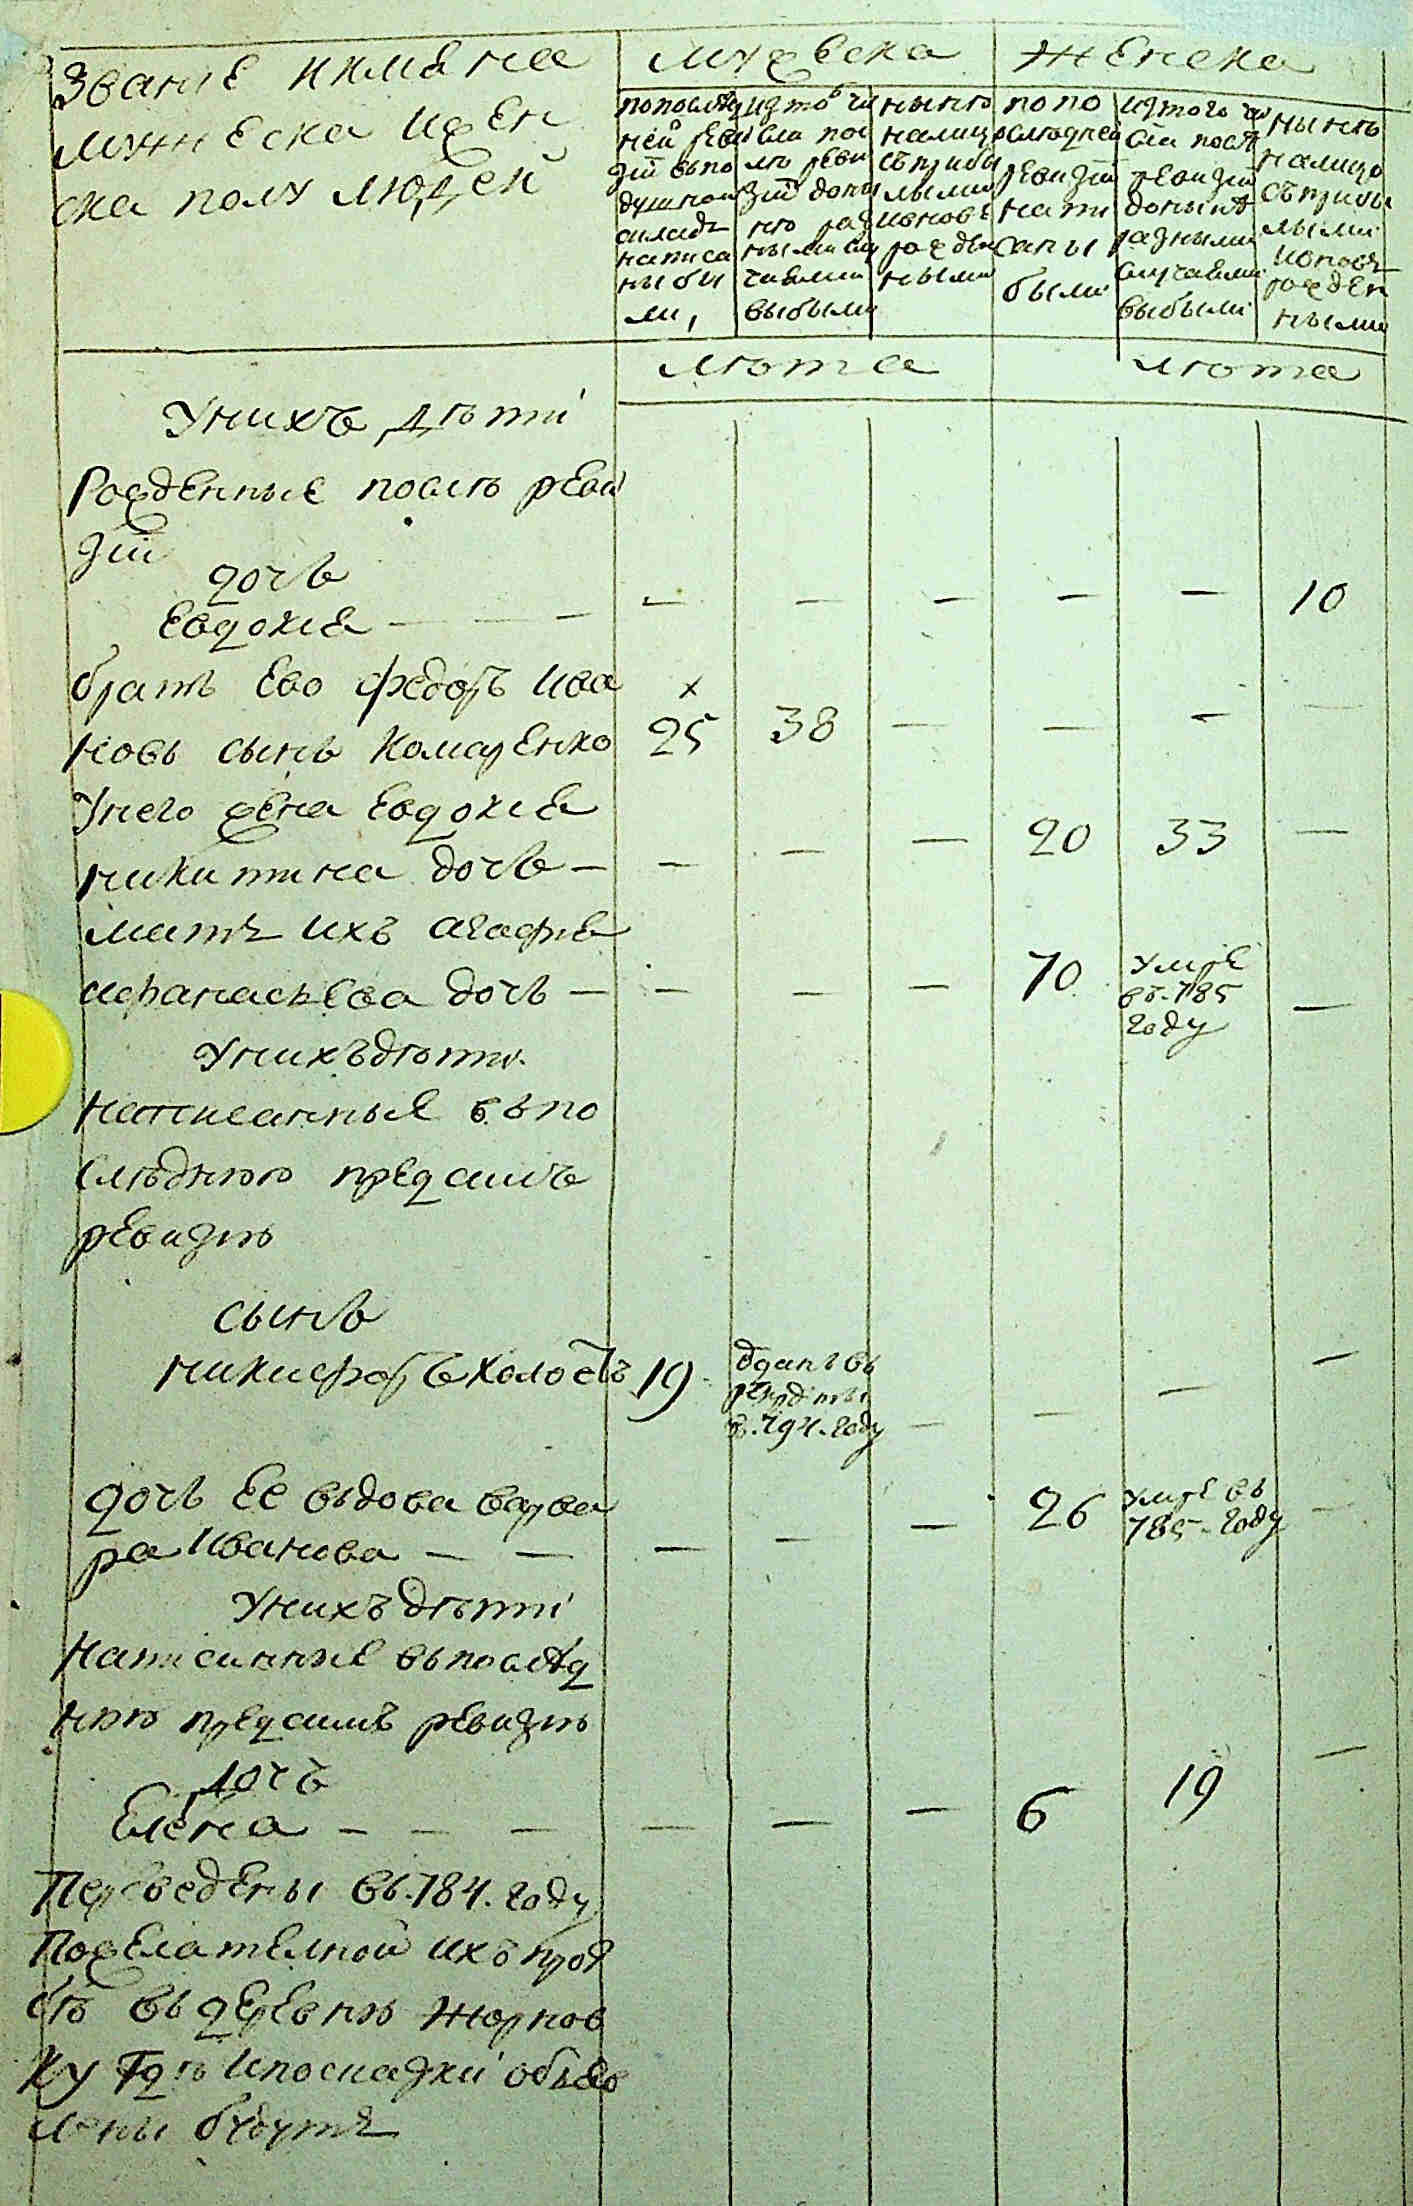 Звание имяна
мужеска ижен
ска полу людей
мужеска
женска
попослѣд
ней реви
зїи вьпо
душном
окладѣ
написа
ны бы
ли,
изтово чи
сла пос
лѣ реви
зїи доны
нѣ раз
ными слу
чаями
выбыли
нынѣ
налицо
съприбы
лыми
ивновь
рожден
ными
попо
следней
ревизїи
напи
саны
были
изтого чи
сла послѣ
ревизїи
донынѣ
разными
случаями
выбыли
нынѣ
налицо
съприбы
лыми
ивновь
рожден
ными
лѣта
лѣта
Унихъ дѣти
Рожденные послѣ реви
зїи
дочь
Евдокия — — — — — — — — 10
братъ Ево Федоръ Ива х
новъ сынъ Комаренко 25 38 — — — —
Унего жена Евдокия
никитина дочь — — — — 20 33 —
мать ихъ агафия
афанасьева дочь — — — — 70 умре
въ .785
году —
Унихъ дѣти
написанные вьпо
слѣднюю предсимъ
ревизию
сынъ
никифоръ холостъ 19 отданъ въ
рекруты
в .794. году — — — —
дочь Ее вьдова варва
ра Иванова — — — — — 26 умре въ
785 году —
Унихъ дѣти
написанные вьпослѣд
нюю предсимъ ревизию
дочь
Елена — — — — — — 6 19 —
Переведены въ .784. году
Пожелателной ихъ прозь
бѣ въ деревню Жорнов
ку Гдѣ ипосказки объяв
лены будутъ